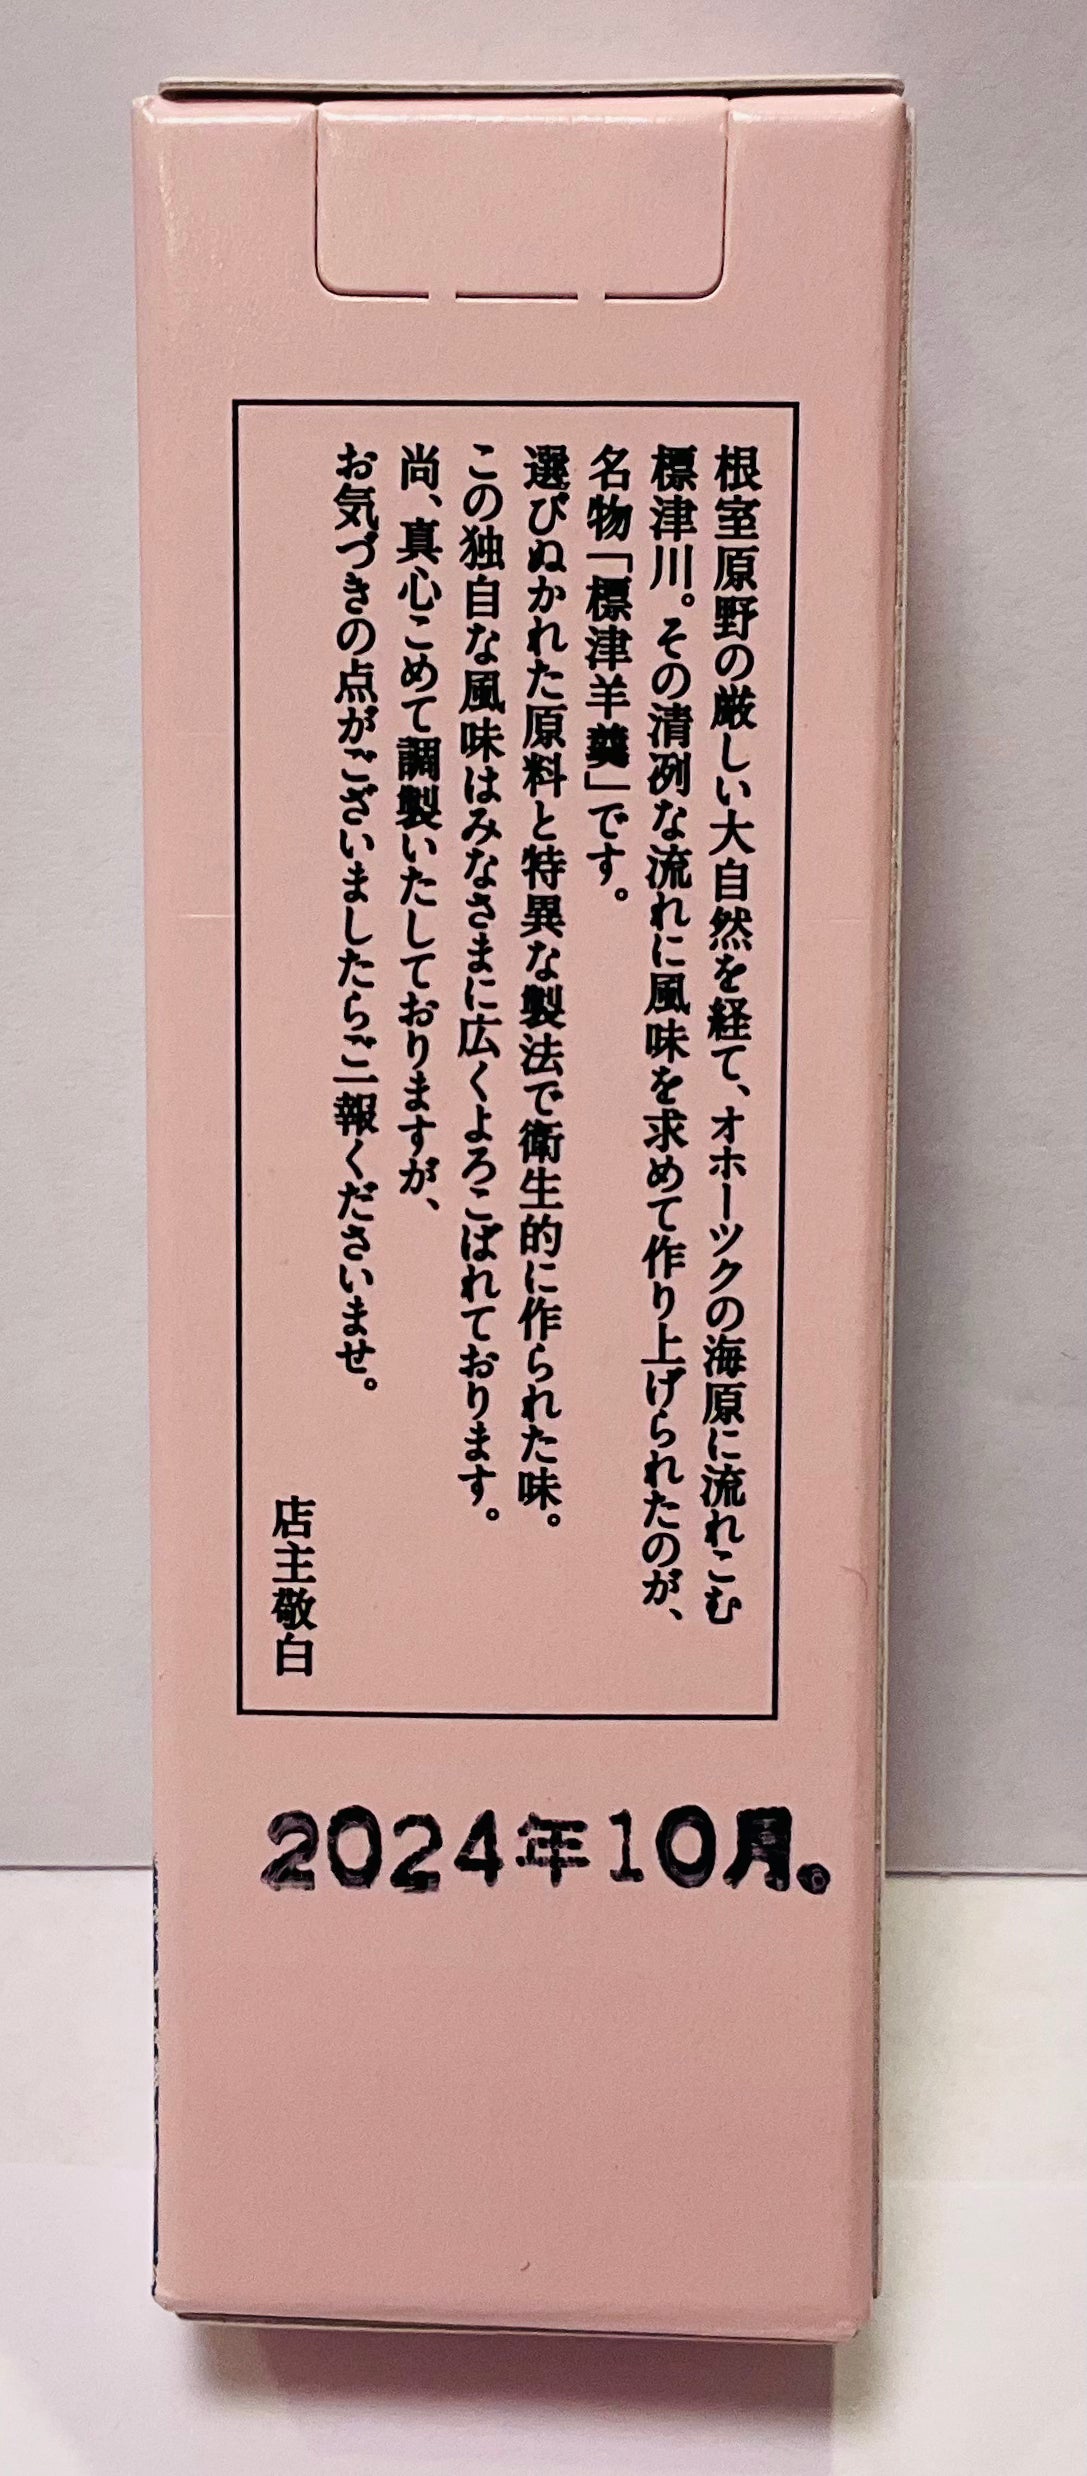 根室原野の厳しい大自然を経て、オホーツクの海原に流れこむ
標津川。その清冽な流れに風味を求めて作り上げられたのが、
名物「標津羊羹」です。
選びぬかれた原料と特異な製法で衛生的に作られた味。
この独自な風味はみなさまに広くよろこばれております。
尚、真心こめて調製いたしておりますが、
お気づきの点がございましたらご一報くださいませ。
店主敬白
2024年10月。